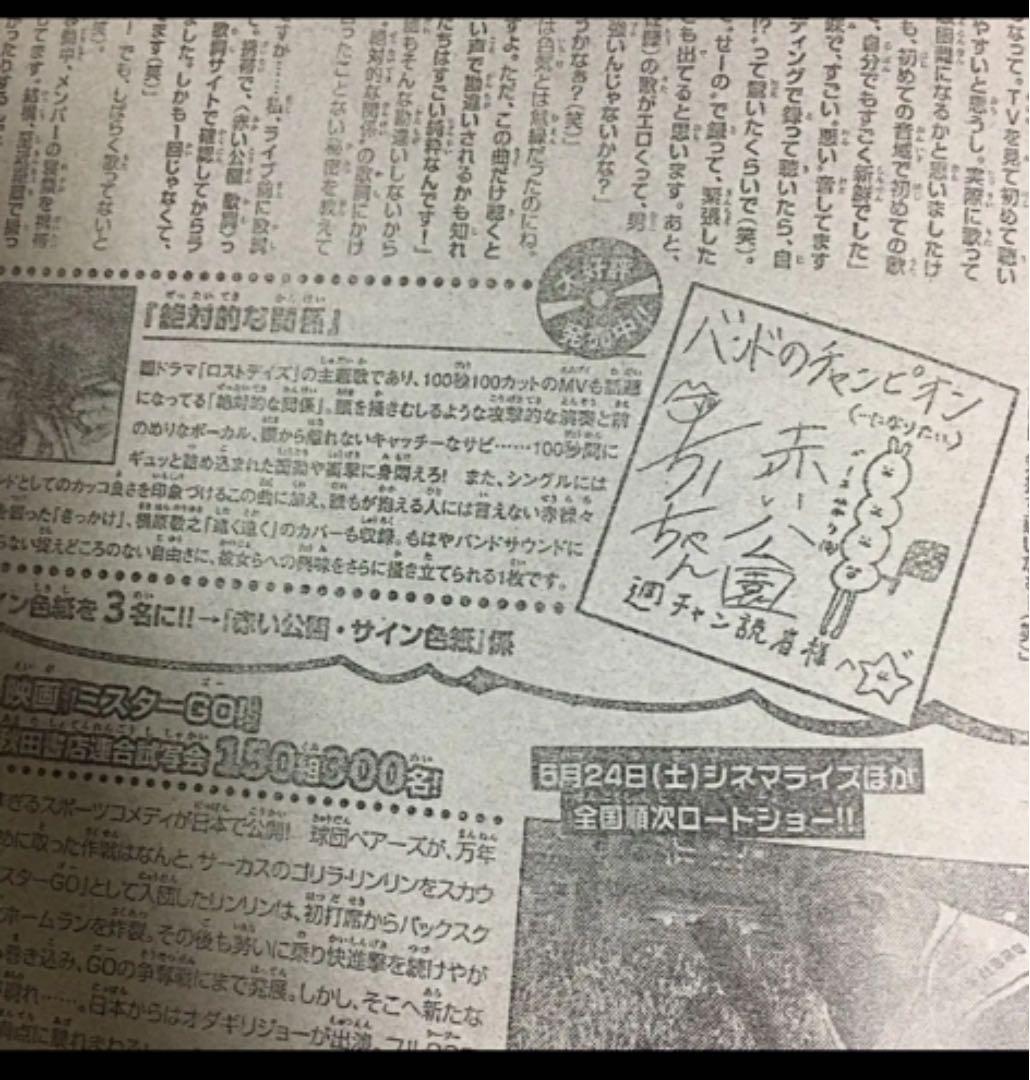 なって。TVを見て初めて聴い
やすいと思うし。実際に歌って
になるかと思いましたけ
も、初めての音域で初めての歌
、自分でもすごく新鮮でした」
で、すごい〝悪い〟音してます
ティングで録って聴いたら、自
!?って驚いたくらいで(笑)。
せーの〟で録って、緊張した
も出てると思います。あと、
の歌がエロくって、男
強いんじゃないかな?」
うかなぁ?(笑)
は色気とは無縁だったのにね。
すよ。ただ、この曲だけ聴くと
い声で勘違いされるかも知れ
たちはすごい純粋なんです!」
もそんな勘違いしないから
絶対的な関係』の歌詞にかけ
ったことない秘密を教えて
すか……私、ライブ前に歌詞
携帯で、〈赤い公園 歌詞〉っ
歌詞サイトで確認してからラ
ました。しかも1回じゃなくて、
ます(笑)」
ー でも、しばらく歌ってないと
笑)。
中、メンバーの言葉を携帯
てます。結構、至近距離で撮っ
大好評
発売中!!
『絶対的な関係』
ドラマ「ロストデイズ」の主題歌であり、100秒100カットのMVも話題
になってる「絶対的な関係」。頭を掻きむしるような攻撃的な演奏と前
のめりなボーカル、頭から離れないキャッチーなサビ……100秒間に
ギュッと詰め込まれた衝動や衝撃に身悶えろ! また、シングルには
ンドとしてのカッコ良さを印象づけるこの曲に加え、誰もが抱える人には言えない赤裸々
を綴った「きっかけ」、槇原敬之「遠く遠く」のカバーも収録。もはやバンドサウンドに
らない捉えどころのない自由さに、彼女らへの興味をさらに掻き立てられる1枚です。
イン色紙を3名に!!→「赤い公園・サイン色紙」係
バンドのチャンピオン
(…になりたい)
赤い公園
ちゃん
週チャン読者様へ
映画『ミスターGO!』
秋田書店連合試写会 150組300名!
ぎるスポーツコメディが日本で公開! 球団ベアーズが、万年
めに取った作戦はなんと、サーカスのゴリラ・リンリンをスカウ
スターGO」として入団したリンリンは、初打席からバックスク
ホームランを炸裂。その後も勢いに乗り快進撃を続けやが
巻き込み、GOの争奪戦にまで発展。しかし、そこへ新たな
現れ……。日本からはオダギリジョーが出演。フル
頂点に
5月24日(土)シネマライズほか
全国順次ロードショー!!